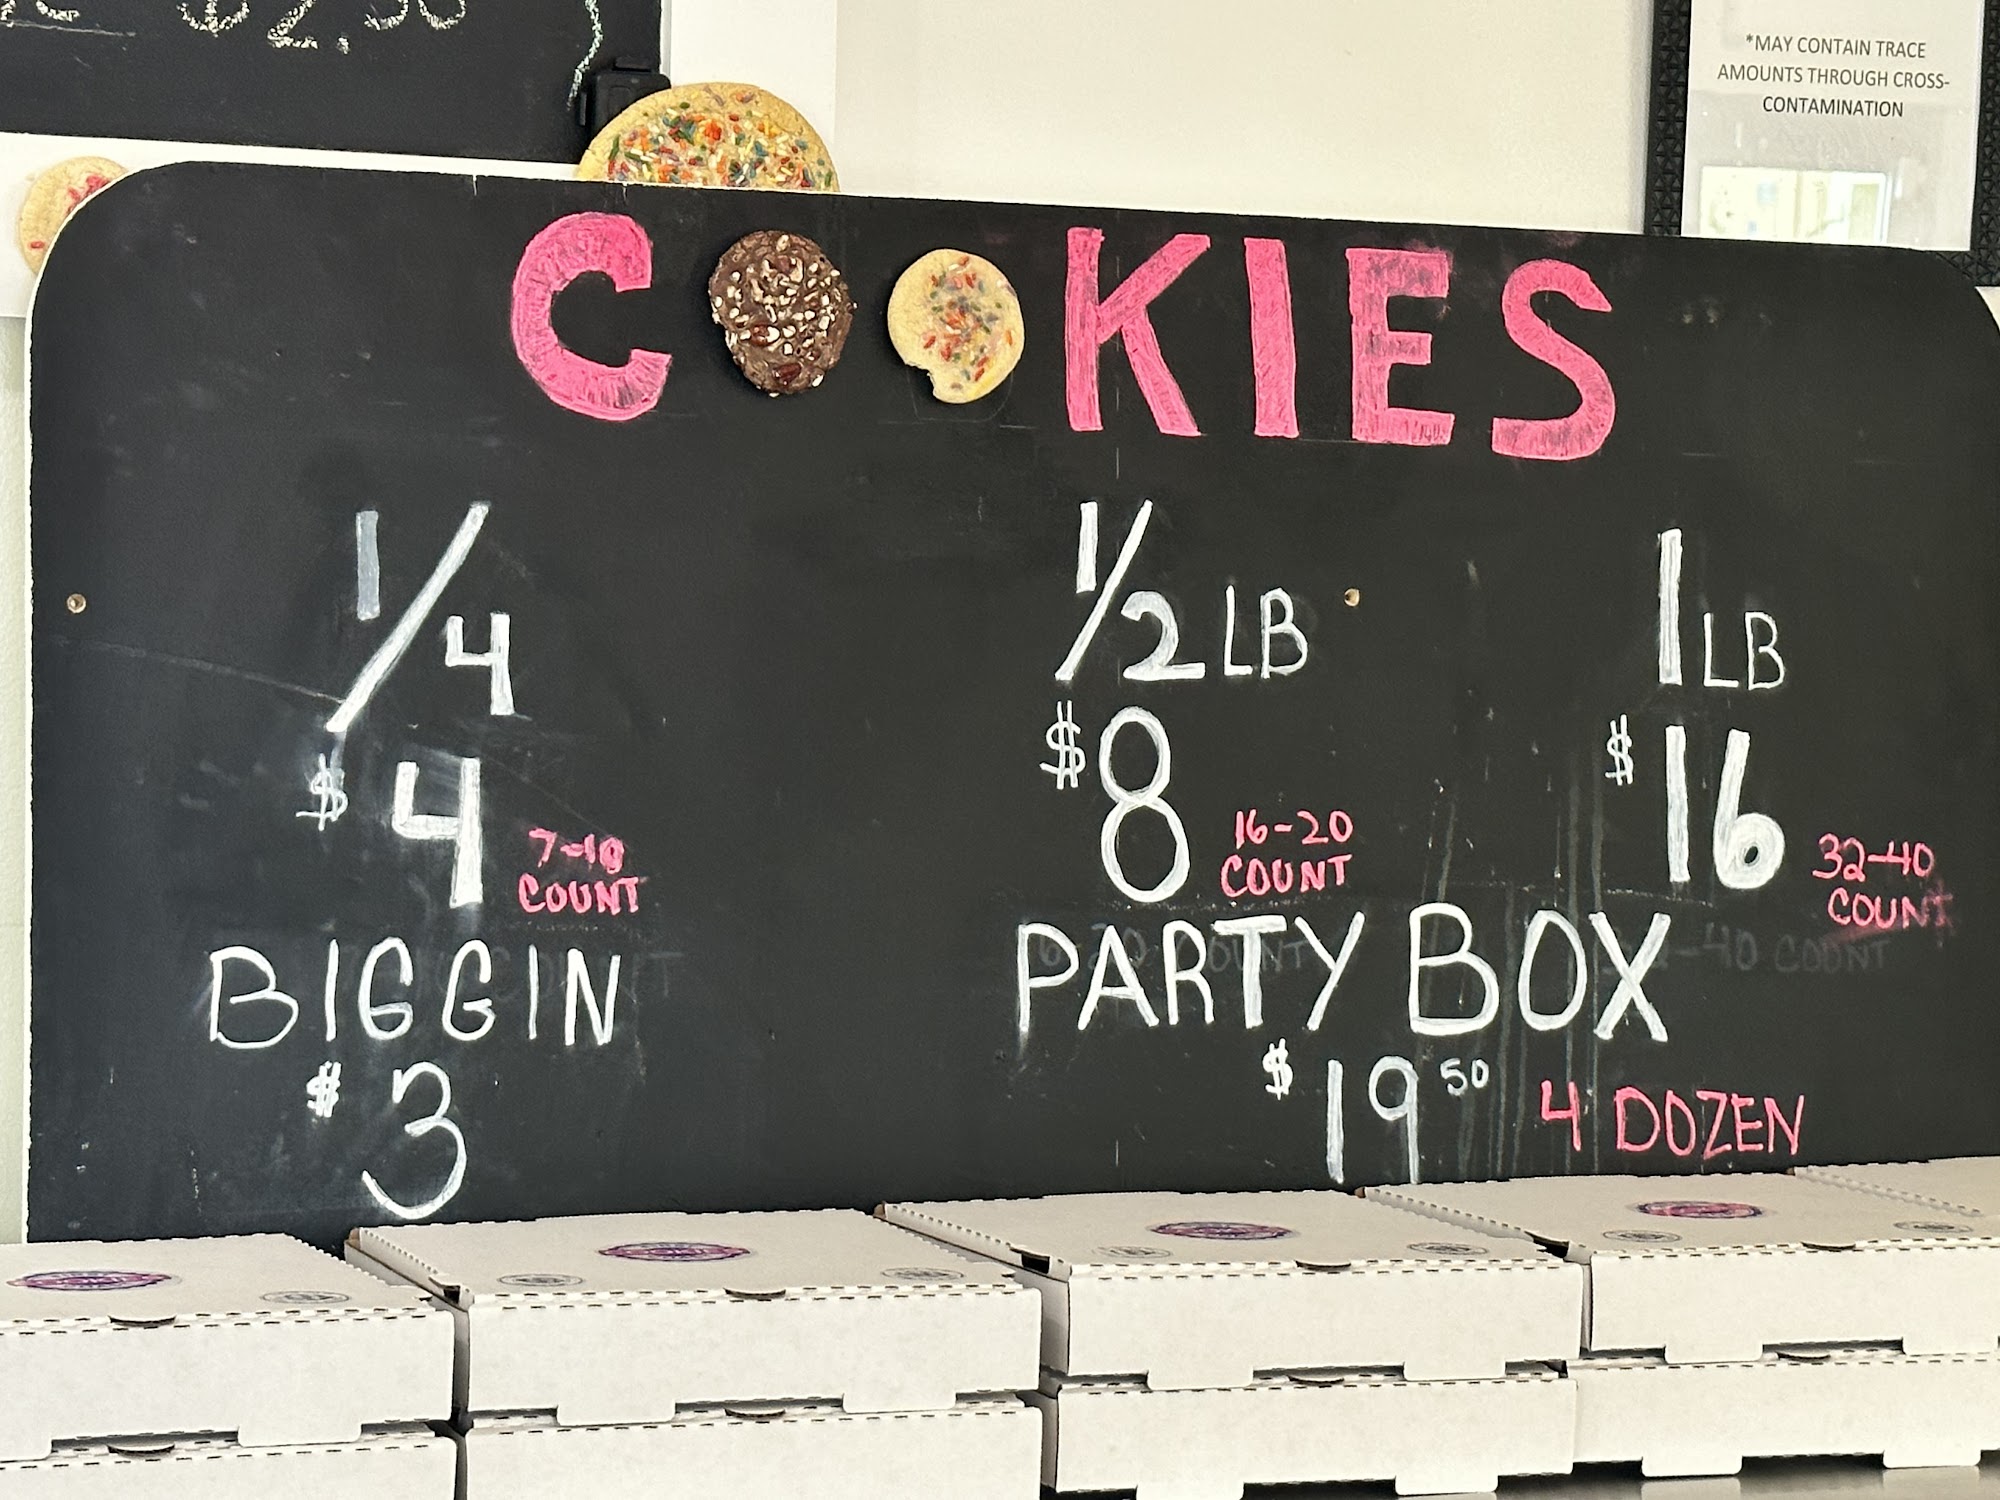 $2.50
*MAY CONTAIN TRACE
AMOUNTS THROUGH CROSS-
CONTAMINATION
COOKIES
1/4
$4
7-10
COUNT
1/2 LB
$8
16-20
COUNT
1 LB
$16
32-40
COUNT
BIGGIN
$3
PARTY BOX
$19 50
4 DOZEN